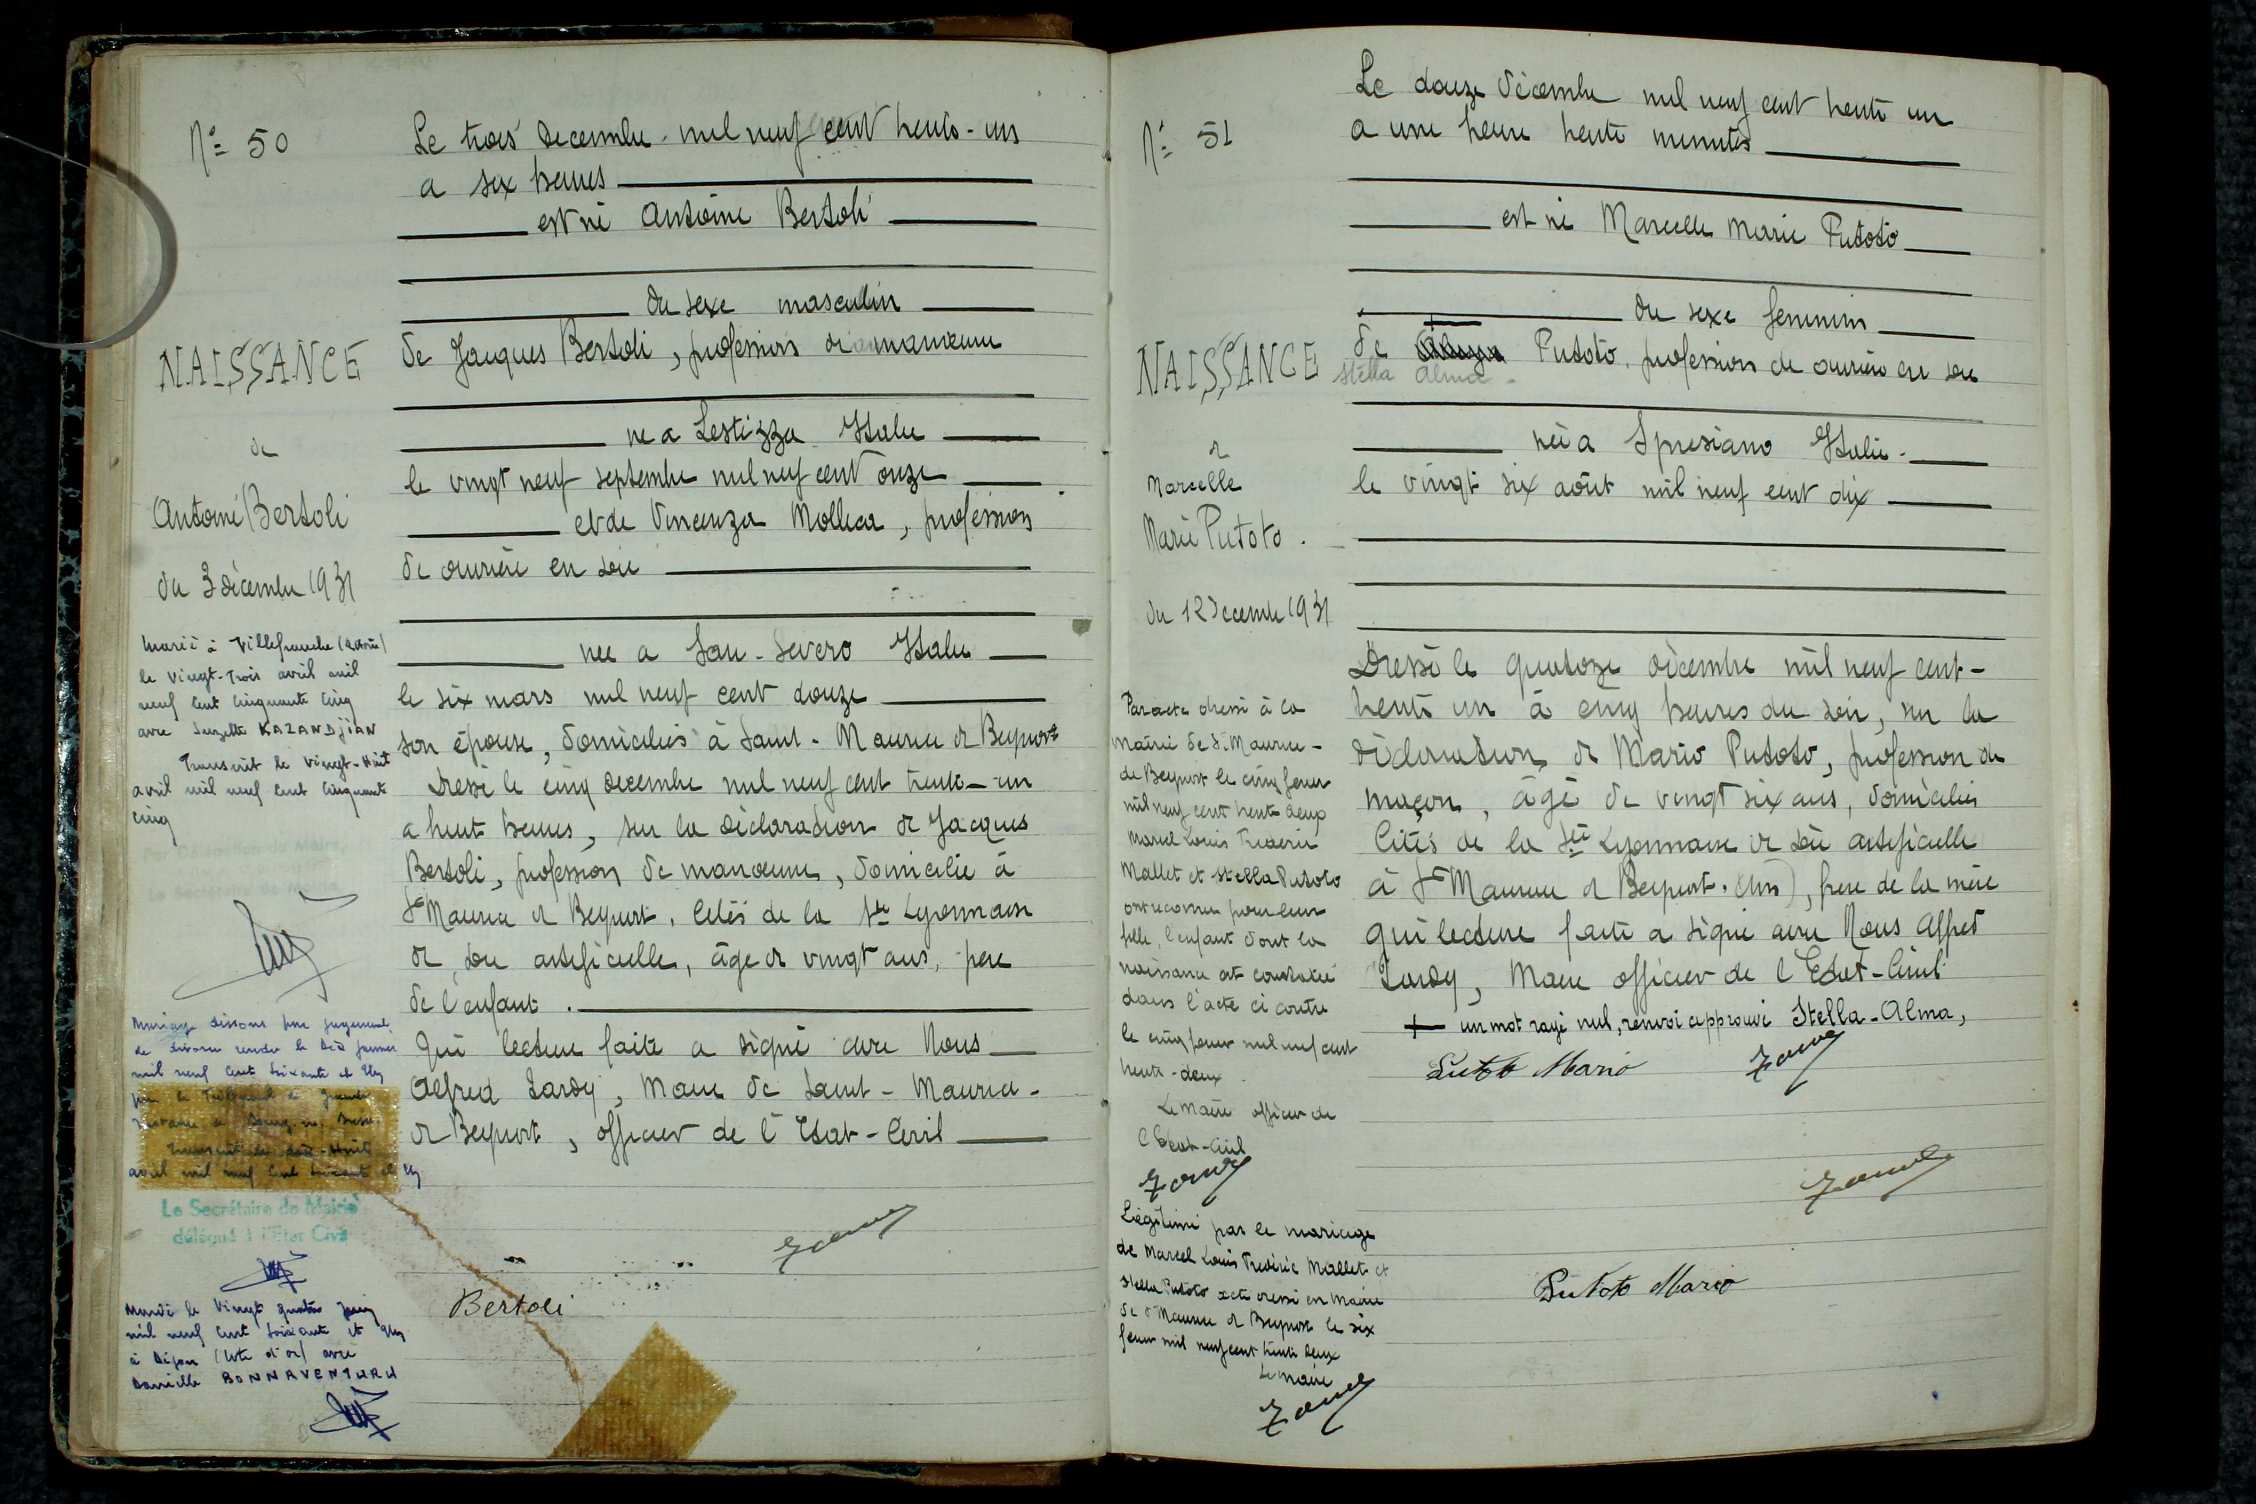 N° 50
NAISSANCE
de
Antoine Bertoli
du 3 décembre 1931
Marié à Villefranche (Rhône)
le vingt-trois avril mil
neuf cent cinquante cinq
avec Suzette KAZANDJIAN
Transcrit le vingt-huit
avril mil neuf cent cinquante
cinq
Par Délégation du Maire,
Le Secrétaire de Mairie
Mariage dissous par jugement
de divorce rendu le dix janvier
mil neuf cent soixante et un
par le Tribunal de grande
instance de Bourg-en-Bresse.
Transcrit le dix-huit
avril mil neuf cent soixante et un
Le Secrétaire de Mairie
délégué à l'Etat Civil
Marié le vingt quatre juin
mil neuf cent soixante et un
à Dijon (Côte d'or) avec
Danielle BONNAVENTURA
Le trois decembre mil neuf cent trente-un
a six heures
est né Antoine Bertoli
du sexe masculin
de Jacques Bertoli, profession de manœuvre
né a Lestizza Italie
le vingt neuf septembre mil neuf cent onze
et de Vincenza Mollica, profession
de ouvrière en soie
née a San-Severo Italie
le six mars mil neuf cent douze
son épouse, domiciliés à Saint-Maurice de Beynost
Dressé le cinq decembre mil neuf cent trente-un
a huit heures, sur la déclaration de Jacques
Bertoli, profession de manœuvre, domicilié à
St Maurice de Beynost, Cités de la Sté Lyonnaise
de soie artificielle, âgé de vingt ans, père
de l'enfant.
Qui lecture faite a signé avec Nous
Alfred Tardy, Maire de Saint-Maurice-
de Beynost, officier de l'Etat-Civil
Bertoli
N° 51
NAISSANCE
de
Marcelle
Marie Putoto.
du 12 Décembre 1931
Par acte dressé à la
mairie de St Maurice-
de Beynost le cinq fevrier
mil neuf cent trente deux
Marcel Louis Frederic
Mallet et Stella Putoto
ont reconnu pour leur
fille, l'enfant dont la
naissance est constatée
dans l'acte ci contre
le cinq fevrier mil neuf cent
trente-deux
Le Maire officier de
l'Etat-Civil
Légitimé par le mariage
de Marcel Louis Frédéric Mallet et
Stella Putoto acte dressé en Mairie
de St Maurice de Beynost le six
fevrier mil neuf cent trente deux
Le maire
Le douze décembre mil neuf cent trente un
a une heure trente minutes
est né Marcelle Marie Putoto
du sexe feminin
de Putoto, profession de ouvrière en soie
Stella Alma
née a Spresiano Italie.
le vingt six août mil neuf cent dix
Dressé le quatorze décembre mil neuf cent-
trente un à cinq heures du soir, sur la
déclaration de Mario Putoto, profession de
maçon, âgé de vingt six ans, domicilié
Cités de la Sté Lyonnaise de soie artificielle
à St Maurice de Beynost. (Ain), frère de la mère
qui lecture faite a signé avec Nous Alfred
Tardy, Maire officier de l'Etat-Civil
+ un mot rayé nul, renvoi approuvé Stella-Alma,
Putoto Mario
Putoto Mario